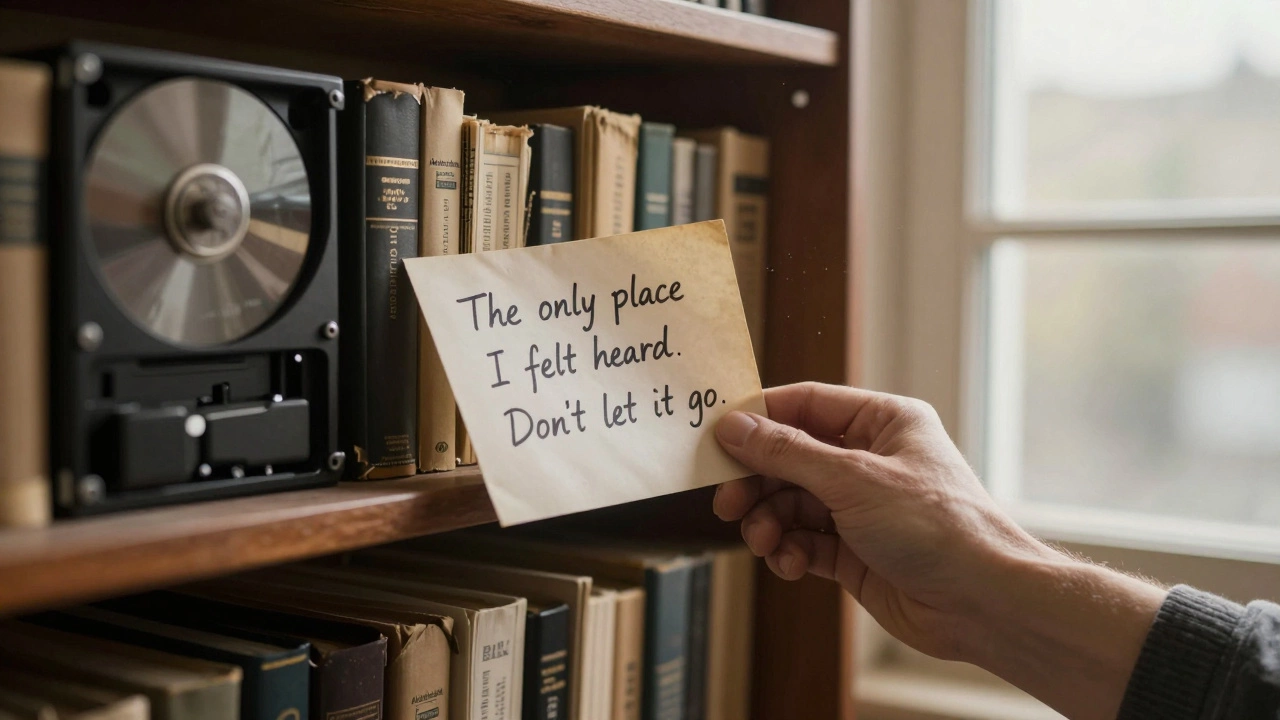 The only place
I felt heard.
Don't let it go.